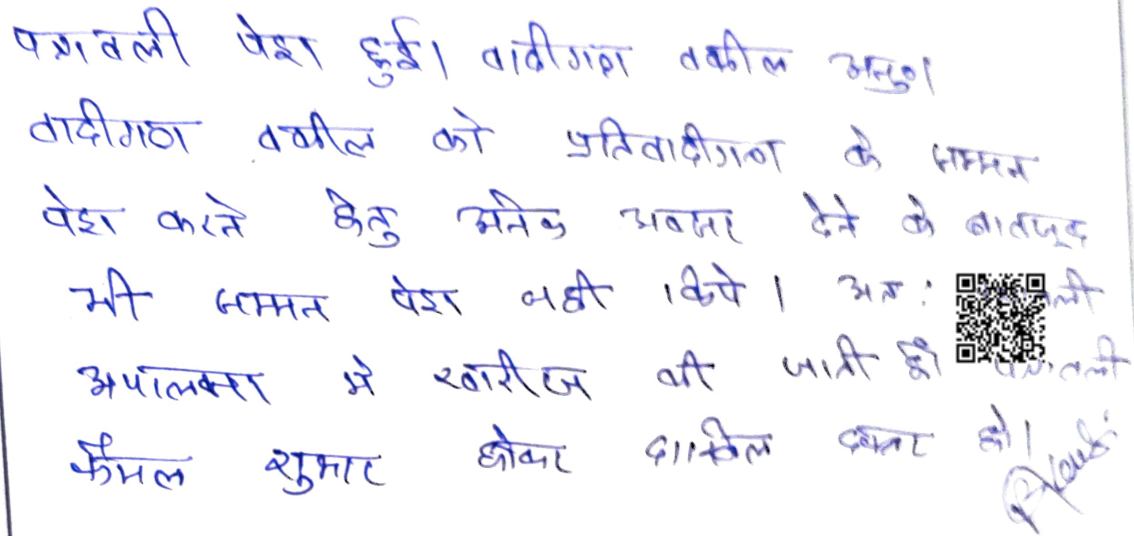 पत्रावली पेश हुई। वादीगण वकील अनु०।
वादीगण वकील को प्रतिवादीगण के सम्मन
पेश करने हेतु अनेक अवसर देने के बावजूद
भी सम्मन पेश नही किये। अतः
अपालना मे खारीज की जाती है। पत्रावली
फैसल शुमार होकर दाखिल दफ्तर हो।